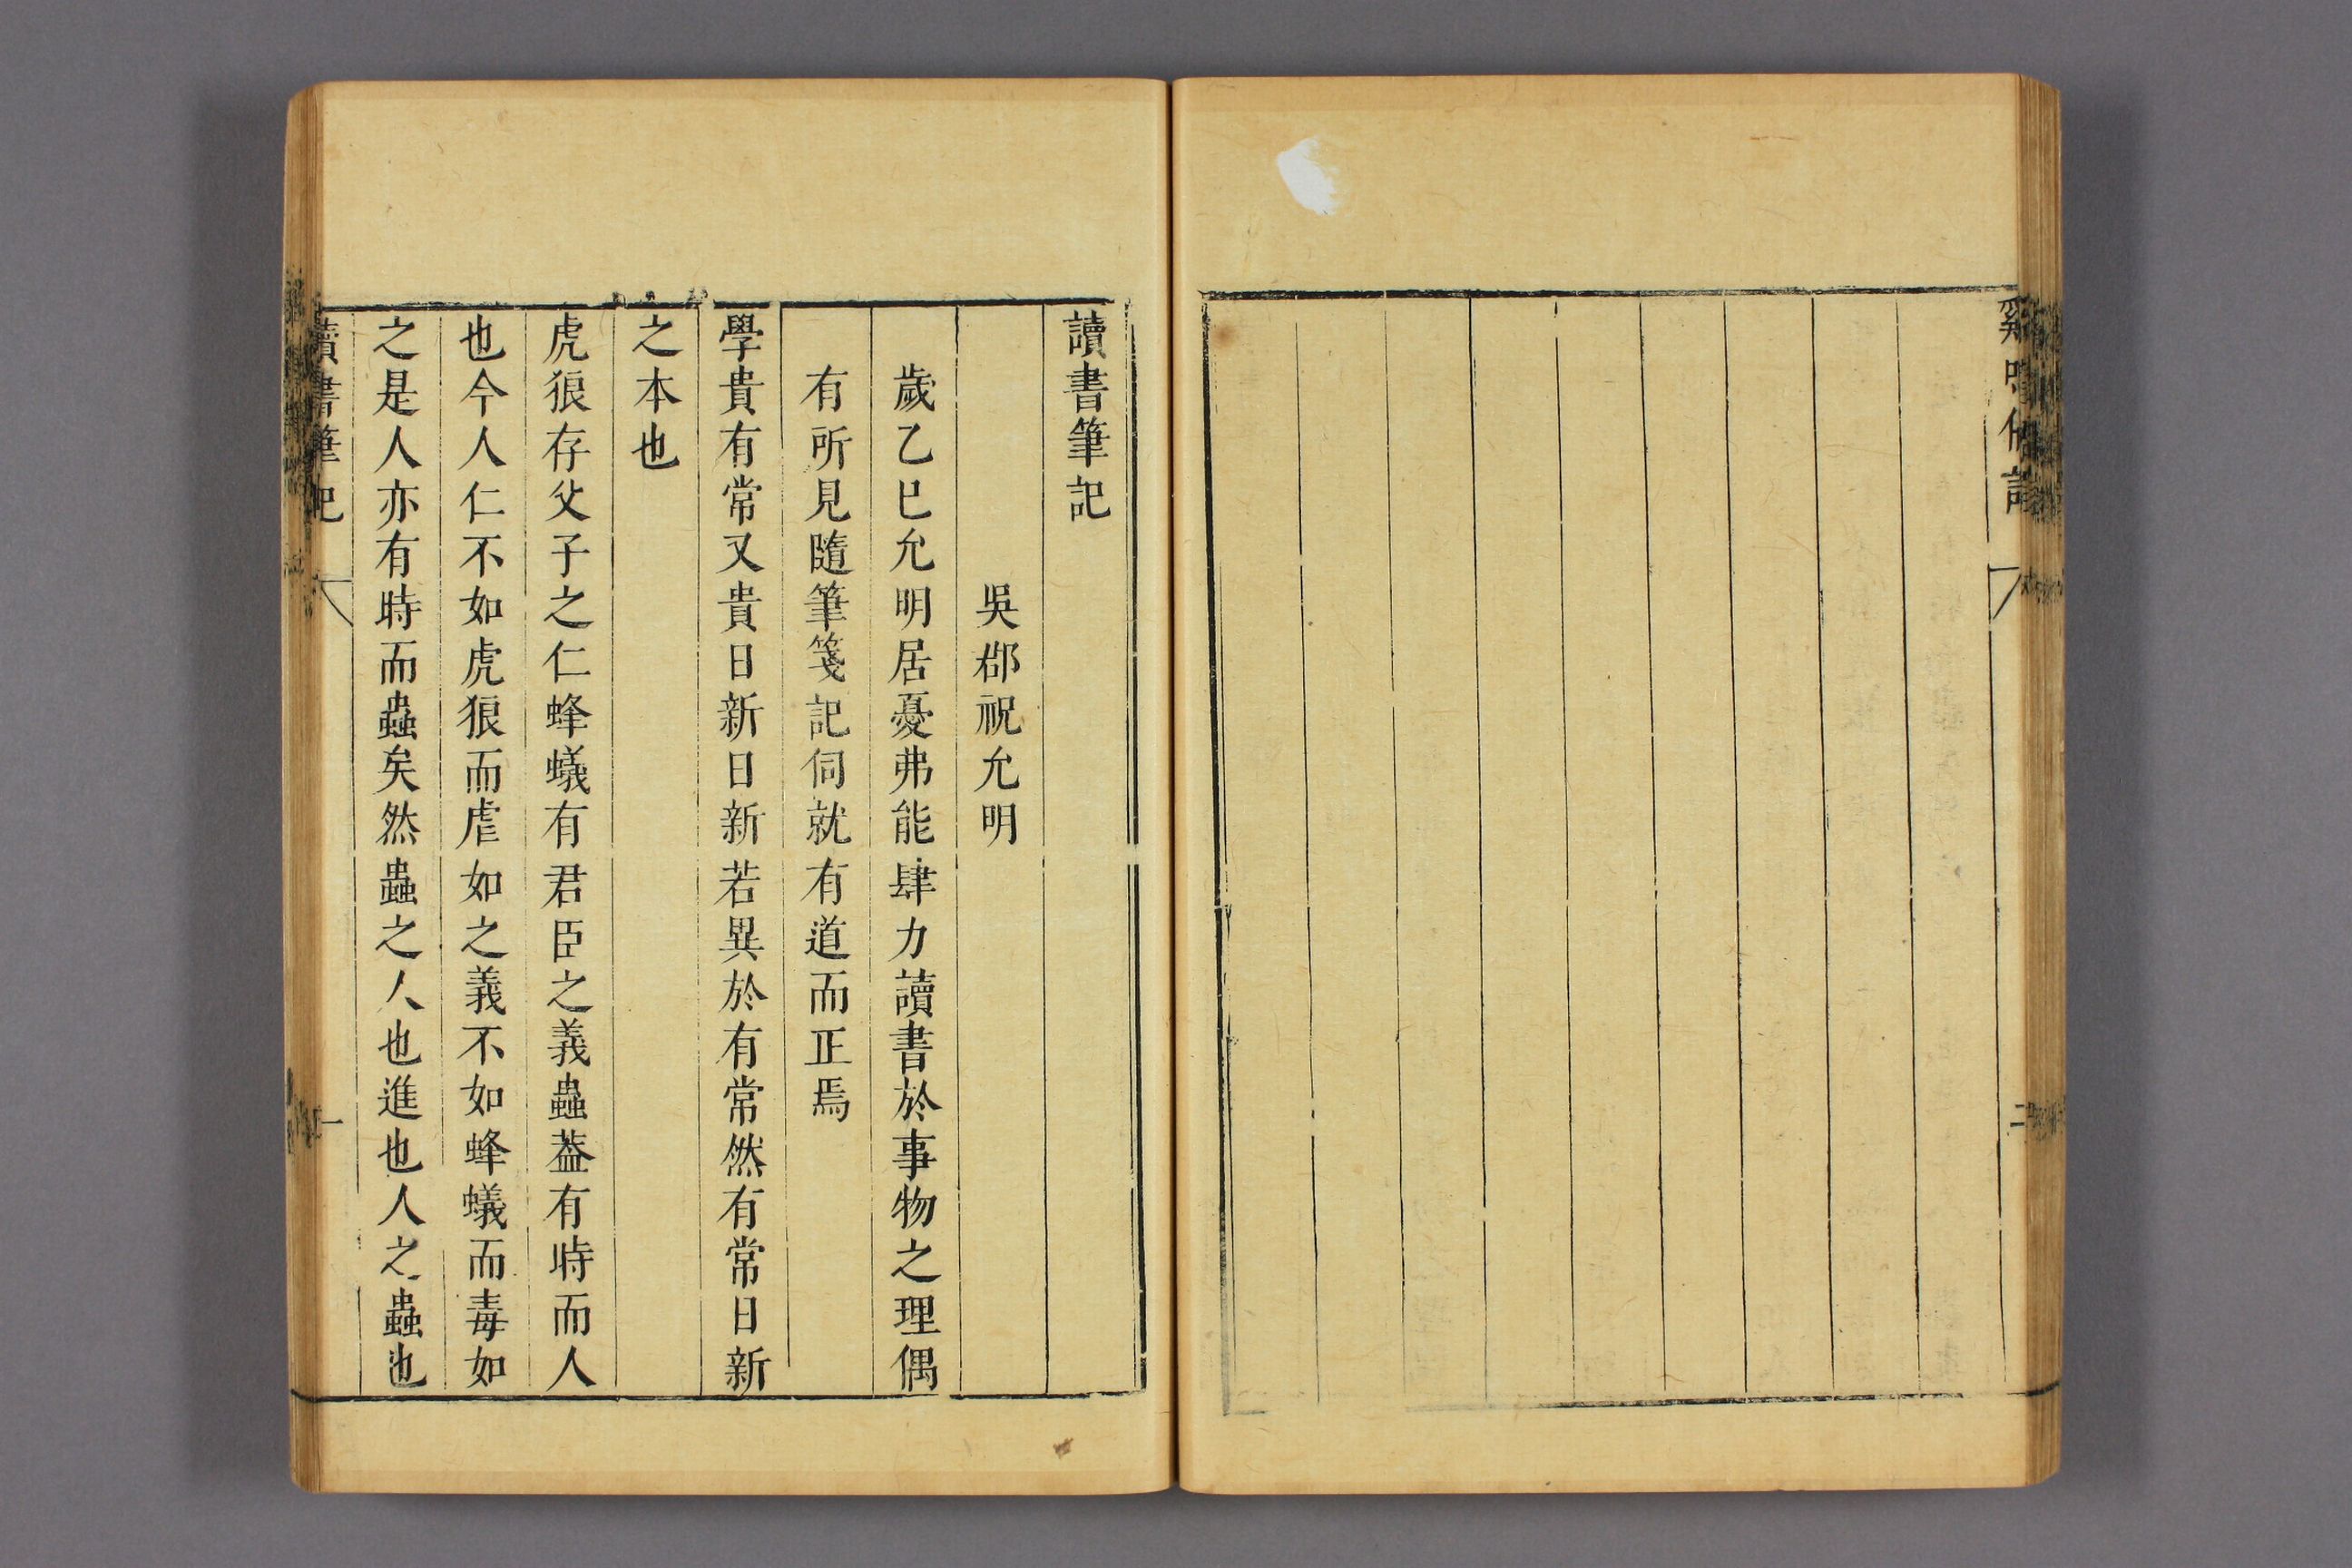 讀書筆記
吳郡祝允明
歲乙巳允明居憂弗能肆力讀書於事物之理偶
有所見隨筆箋記伺就有道而正焉
學貴有常又貴日新日新若異於有常然有常日新
之本也
虎狼存父子之仁蜂蟻有君臣之義蟲葢有時而人
也今人仁不如虎狼而虐如之義不如蜂蟻而毒如
之是人亦有時而蟲矣然蟲之人也進也人之蟲也
讀書筆記
一
二